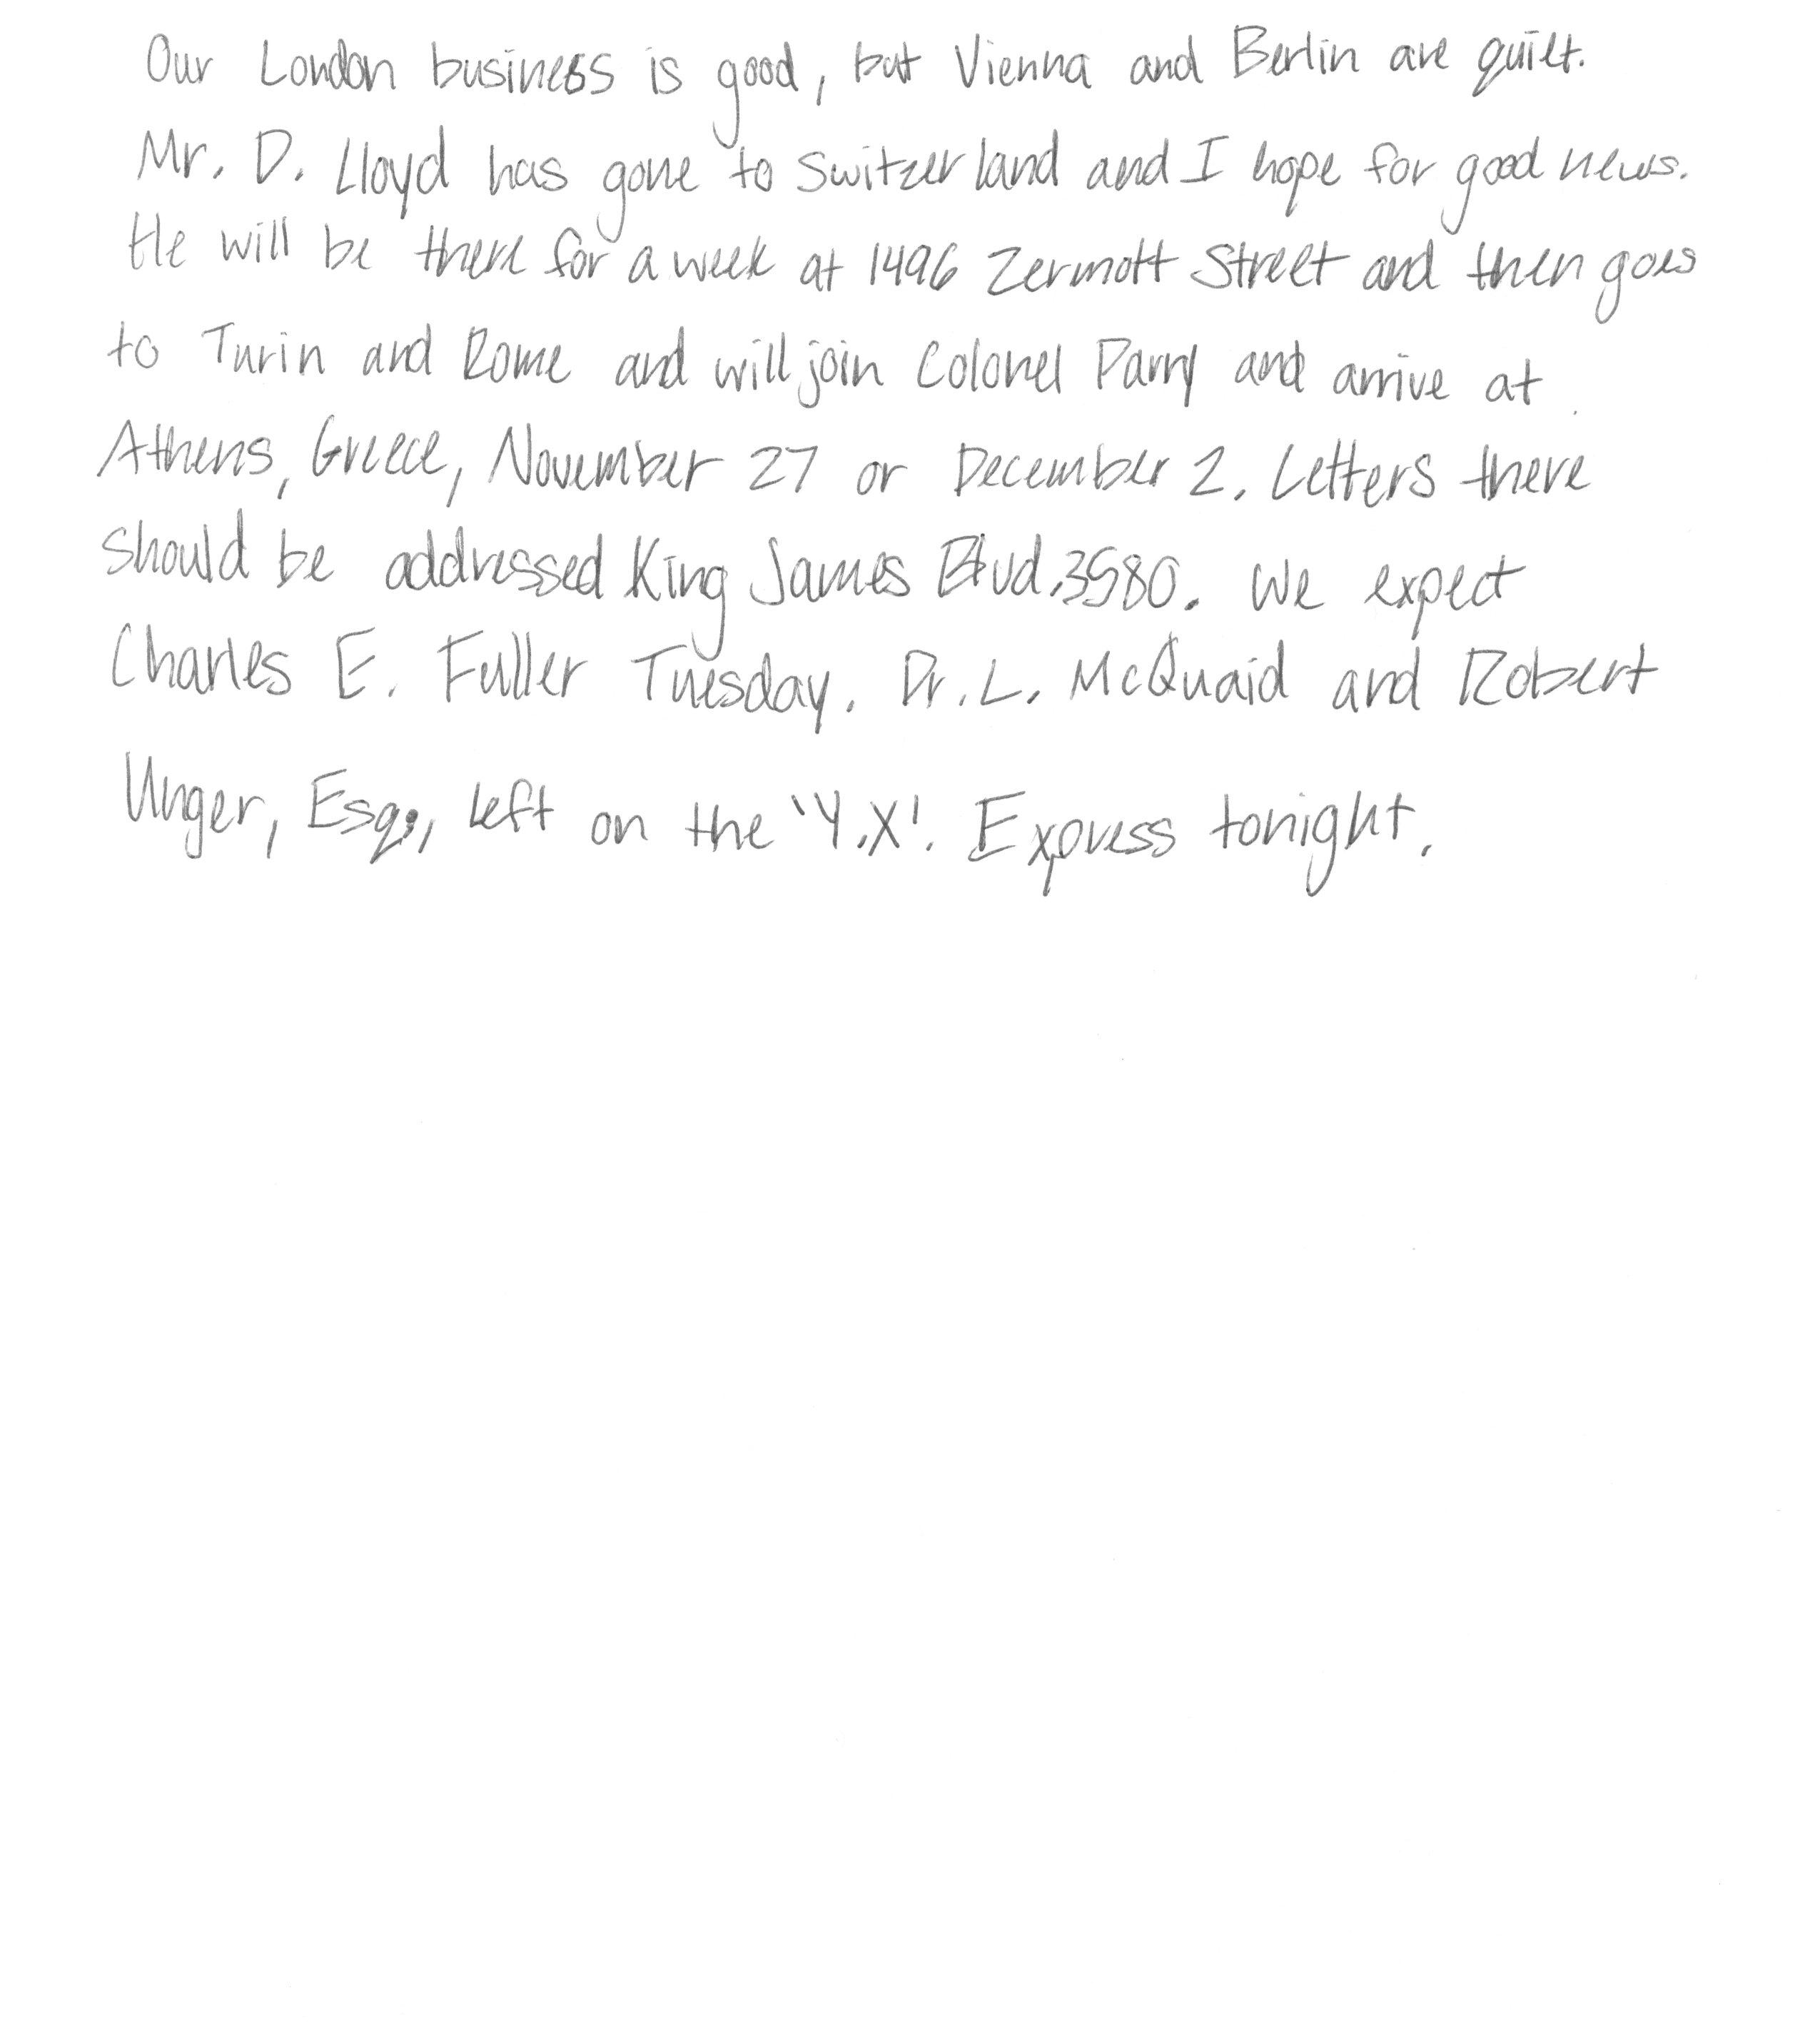 Our London business is good, but Vienna and Berlin are quiet.
Mr. D. Lloyd has gone to Switzerland and I hope for good news.
He will be there for a week at 1496 Zermott Street and then goes
to Turin and Rome and will join Colonel Parry and arrive at
Athens, Greece, November 27 or December 2. Letters there
should be addressed King James Blvd. 3580. We expect
Charles E. Fuller Tuesday. Dr. L. McQuaid and Robert
Unger, Esq., left on the 'Y.X'. Express tonight.